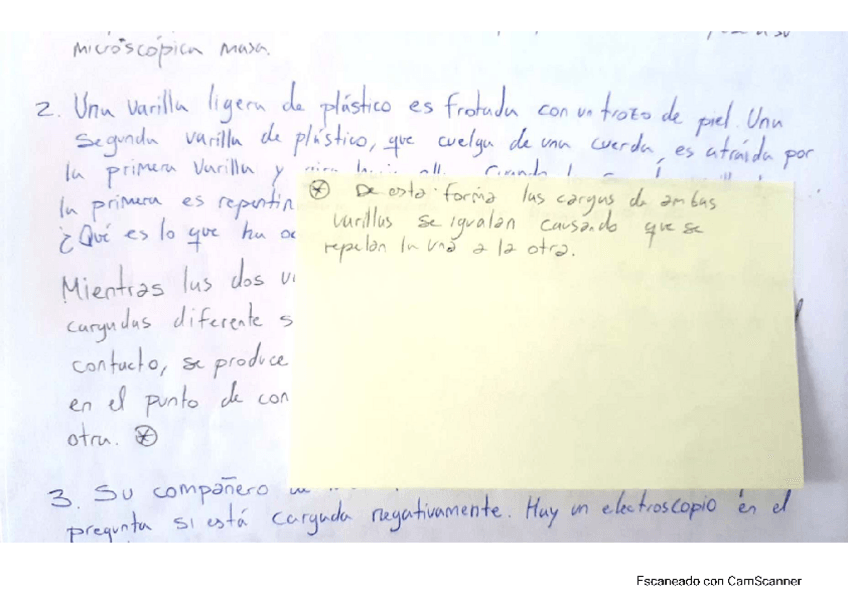 microscópica masa.
2. Una varilla ligera de plástico es frotada con un trozo de piel. Una
segunda varilla de plástico, que cuelga de una cuerda, es atraída por
la primera varilla y
la primera es repentin
¿Qué es lo que ha oc
⊛ De esta forma las cargas de ambas
varillas se igualan causando que se
repelan la una a la otra.
Mientras las dos va
cargadas diferente s
contacto, se produce
en el punto de con
otra. ⊛
3. Su compañero
pregunta si está cargada negativamente. Hay un electroscopio en el
Escaneado con CamScanner